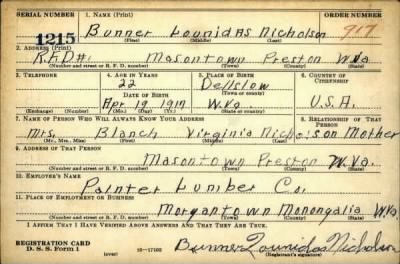 SERIAL NUMBER 1. NAME (Print) ORDER NUMBER
1215 Bunner Lounidas Nicholson 917
(First) (Middle) (Last)
2. ADDRESS (Print)
R.F.D#1 Masontown Preston W.Va.
(Number and street or R. F. D. number) (Town) (County) (State)
3. TELEPHONE 4. AGE IN YEARS 5. PLACE OF BIRTH 6. COUNTRY OF CITIZENSHIP
22 Dellslow
DATE OF BIRTH (Town or county)
Apr 19 1917 W.Va U.S.A.
(Exchange) (Number) (Mo.) (Day) (Yr.) (State or country)
7. NAME OF PERSON WHO WILL ALWAYS KNOW YOUR ADDRESS 8. RELATIONSHIP OF THAT PERSON
Mrs. Blanch Virginia Nicholson Mother
(Mr., Mrs., Miss) (First) (Middle) (Last)
9. ADDRESS OF THAT PERSON
Masontown Preston W.Va.
(Number and street or R. F. D. number) (Town) (County) (State)
10. EMPLOYER'S NAME
Painter Lumber Co.
11. PLACE OF EMPLOYMENT OR BUSINESS
Morgantown Monongalia W.Va
(Number and street or R. F. D. number) (Town) (County) (State)
I AFFIRM THAT I HAVE VERIFIED ABOVE ANSWERS AND THAT THEY ARE TRUE.
REGISTRATION CARD
D. S. S. Form 1 (over) 16—17105 Bunner Lounidas Nicholson
(Registrant's signature)